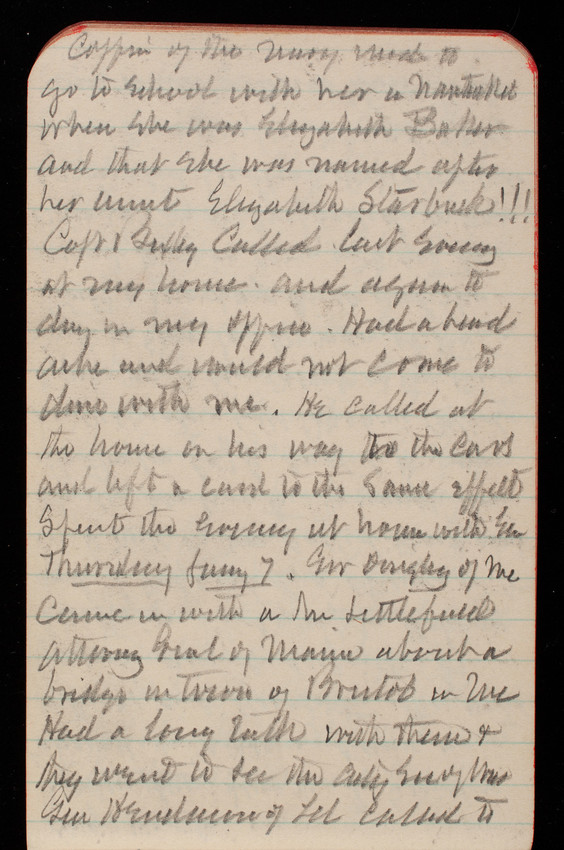 Coffin of the Navy used to
go to School with her in Nantucket
when she was Elizabeth Baker
and that she was named after
her aunt Elizabeth Starbuck!!!
Capt Bixby Called last Evening
at my home and again to
day in my office. Had a head
ache and would not come to
dine with me. He called at
the home on his way to the Cars
and left a card to the same effect
Spent the Evening at home with Em
Thursday Jany 7. Gov Dingley of Me
Came in with a Mr Littlefield
Attorney Genl of Maine about a
bridge in town of Bristol in Me
Had a long talk with them &
they went to see the
Gen Henderson of Ill called to